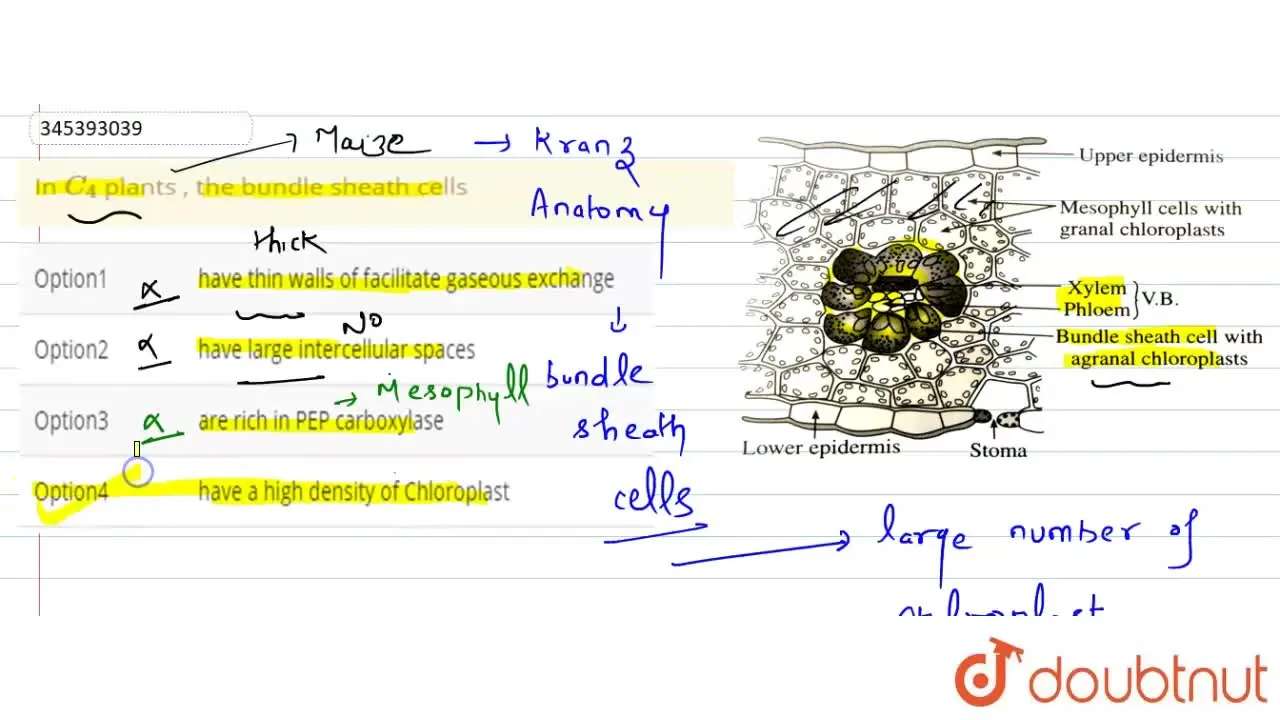 345393039
Maize → Kranz
In C4 plants , the bundle sheath cells
Anatomy
thick
Option1 α have thin walls of facilitate gaseous exchange
NO
Option2 α have large intercellular spaces
→ Mesophyll
Option3 α are rich in PEP carboxylase
Option4 have a high density of Chloroplast
bundle
sheath
cells
large number of
Upper epidermis
Mesophyll cells with
granal chloroplasts
Xylem
Phloem } V.B.
Bundle sheath cell with
agranal chloroplasts
Lower epidermis
Stoma
doubtnut